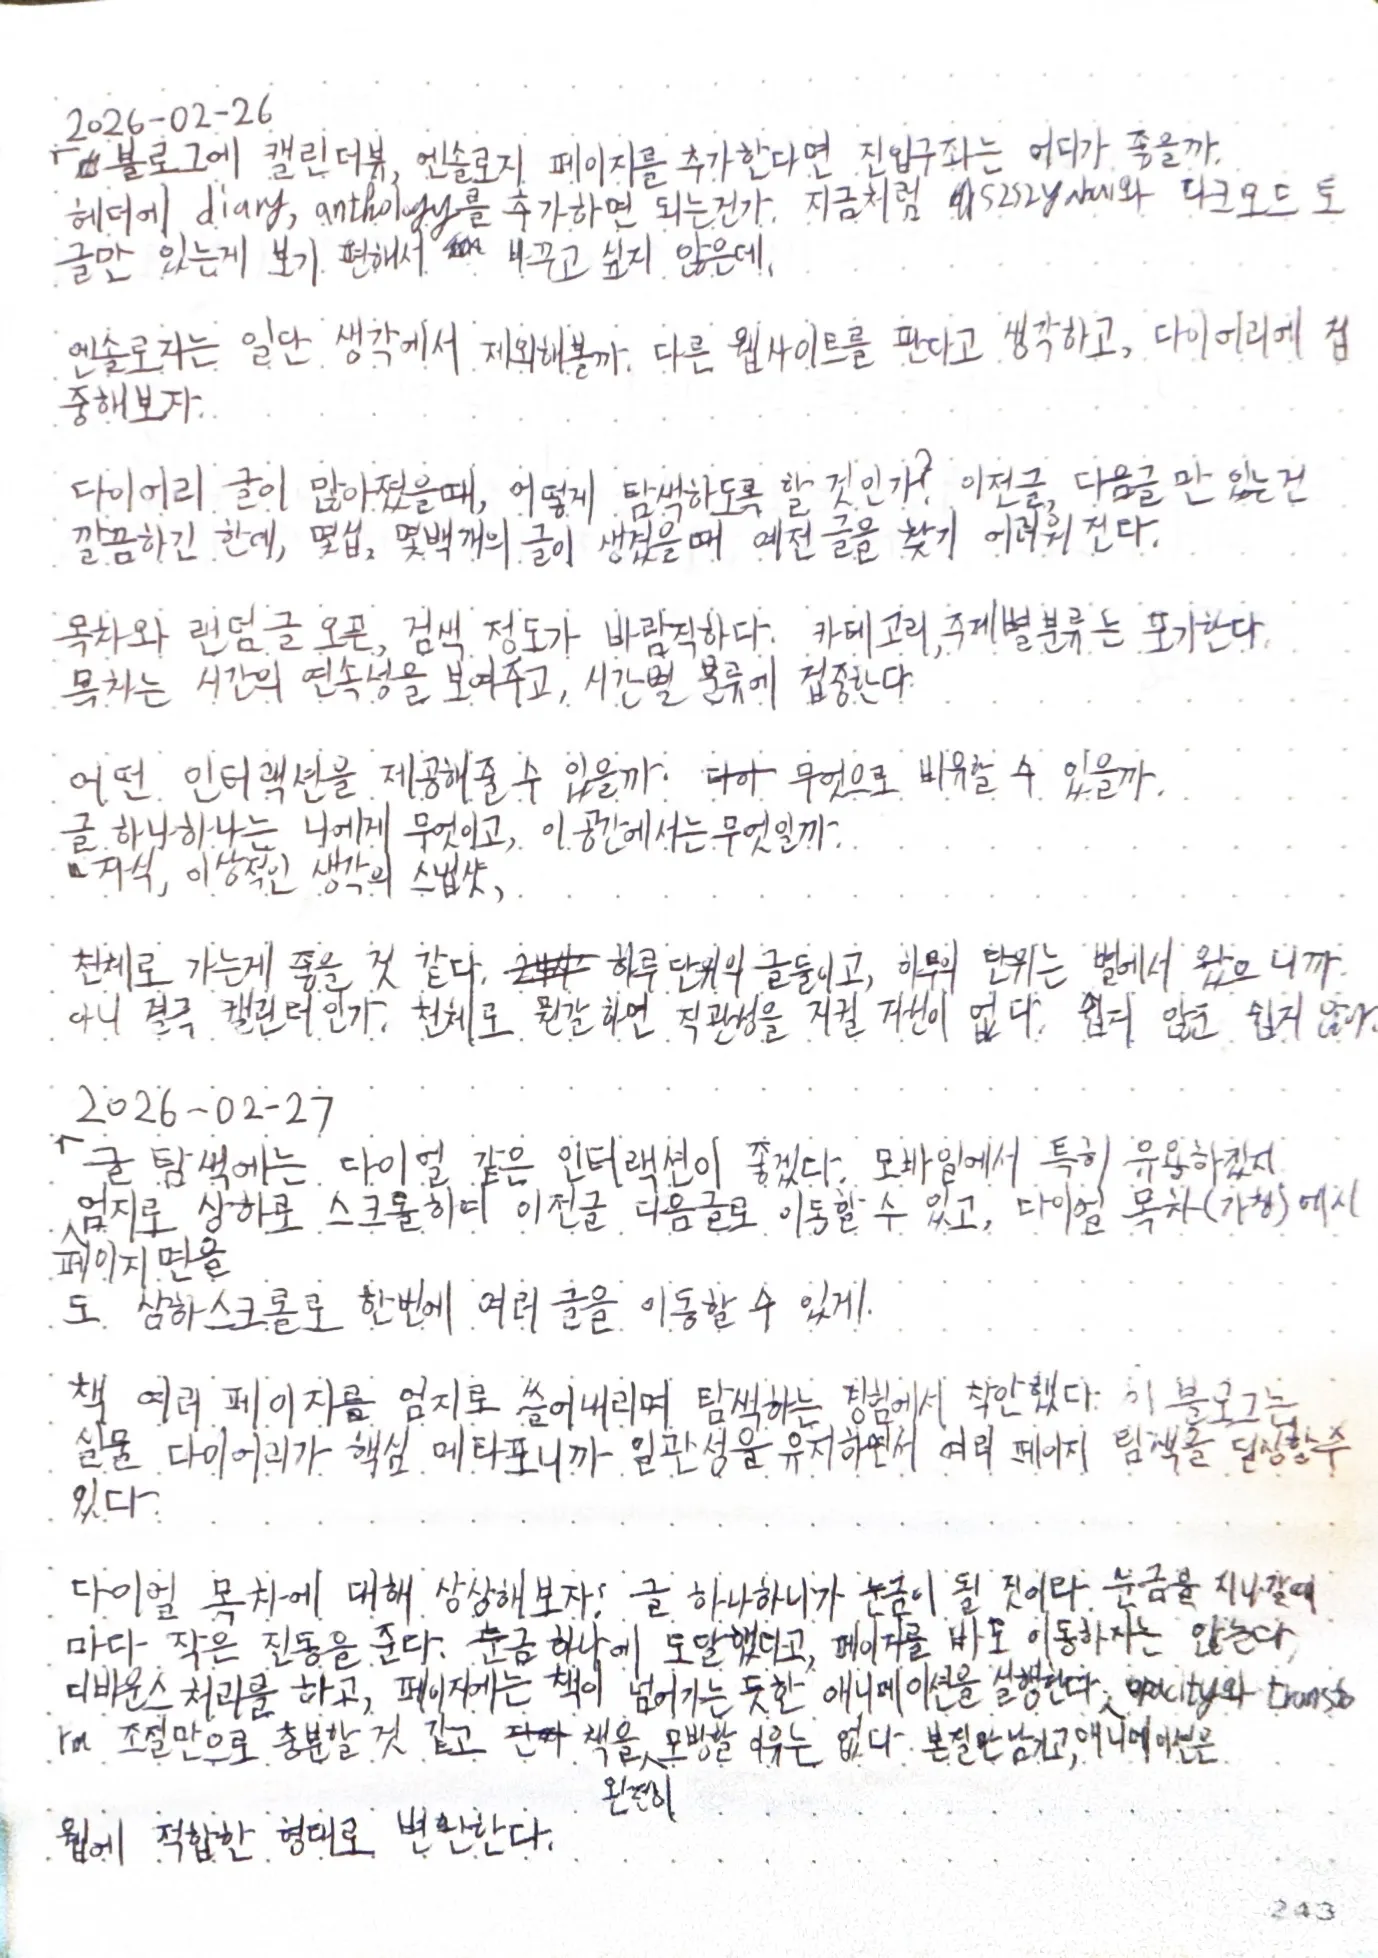 2026-02-26
블로그에 캘린더뷰, 엔솔로지 페이지를 추가한다면 진입구좌는 어디가 좋을까.
헤더에 diary, anthology를 추가하면 되는건가. 지금처럼 와 다크모드 토
글만 있는게 보기 편해서 바꾸고 싶지 않은데.
엔솔로지는 일단 생각에서 제외해볼까. 다른 웹사이트를 판다고 생각하고, 다이어리에 집
중해보자.
다이어리 글이 많아졌을때, 어떻게 탐색하도록 할 것인가? 이전글, 다음글만 있는건
깔끔하긴 한데, 몇십, 몇백개의 글이 생겼을때 예전 글을 찾기 어려워진다.
목차와 랜덤글 오픈, 검색 정도가 바람직하다. 카테고리, 주제별분류는 포기한다.
목차는 시간의 연속성을 보여주고, 시간별 분류에 집중한다.
어떤 인터랙션을 제공해줄 수 있을까. 무엇으로 비유할 수 있을까.
글 하나하나는 나에게 무엇이고, 이 공간에서는 무엇일까.
지식, 이상적인 생각의 스냅샷,
천체로 가는게 좋을 것 같다. 하루 단위의 글들이고, 하루의 단위는 별에서 왔으니까.
아니 결국 캘린더인가. 천체로 뭔갈 하면 직관성을 지킬 자신이 없다. 쉽지 않군 쉽지 않아.
2026-02-27
글 탐색에는 다이얼 같은 인터랙션이 좋겠다. 모바일에서 특히 유용하겠지.
엄지로 상하로 스크롤하며 이전글 다음글로 이동할 수 있고, 다이얼 목차(가칭)에서
페이지면을
도 상하스크롤로 한번에 여러 글을 이동할 수 있게.
책 여러 페이지를 엄지로 쓸어내리며 탐색하는 경험에서 착안했다. 이 블로그는
실물 다이어리가 핵심 메타포니까 일관성을 유지하면서 여러 페이지 탐색을 달성할 수
있다.
다이얼 목차에 대해 상상해보자. 글 하나하나가 눈금이 될 것이다. 눈금을 지나갈때
마다 작은 진동을 준다. 눈금 하나에 도달했다고, 페이지를 바로 이동하지는 않는다,
디바운스 처리를 하고, 페이지에는 책이 넘어가는 듯한 애니메이션을 실행한다. opacity와 transfo
rm 조절만으로 충분할 것 같고 책을 모방할 이유는 없다. 본질만 남기고, 애니메이션은
완전히
웹에 적합한 형태로 변환한다.
243